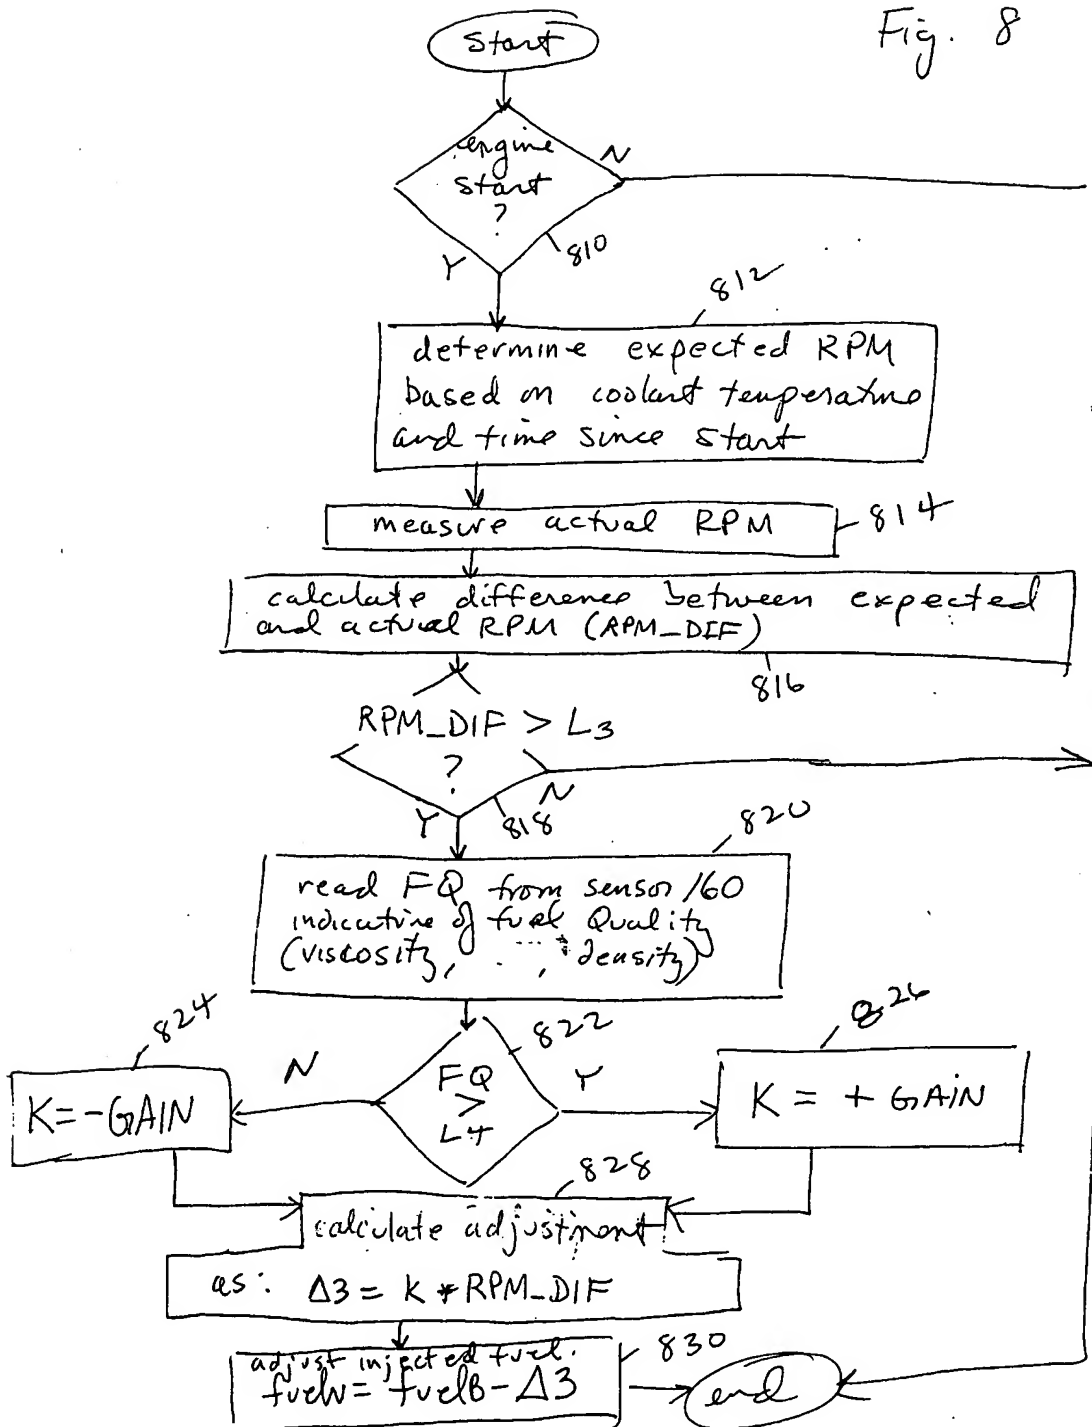 Fig. 8
start
engine
start
?
N
Y
810
812
determine expected RPM
based on coolant temperature
and time since start
measure actual RPM
814
calculate difference between expected
and actual RPM (RPM_DIF)
816
RPM_DIF > L3
?
N
Y
818
820
read FQ from sensor 160
indicative of fuel Quality
(viscosity, ..., density)
822
824
826
N
FQ
>
L4
Y
K=-GAIN
K = + GAIN
828
calculate adjustment
as: Δ3 = K * RPM_DIF
830
adjust injected fuel.
fuelN = fuelB - Δ3
end